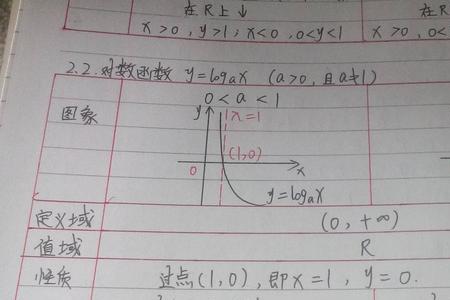 在R上↓
在R
x>0,y>1;x<0,0<y<1
x>0,0<
2.2.对数函数 y=logₐx (a>0,且a≠1)
0<a<1
图象
y
x=1
(1,0)
0
x
y=logₐx
定义域
(0,+∞)
值域
R
性质
过点(1,0),即x=1,y=0.